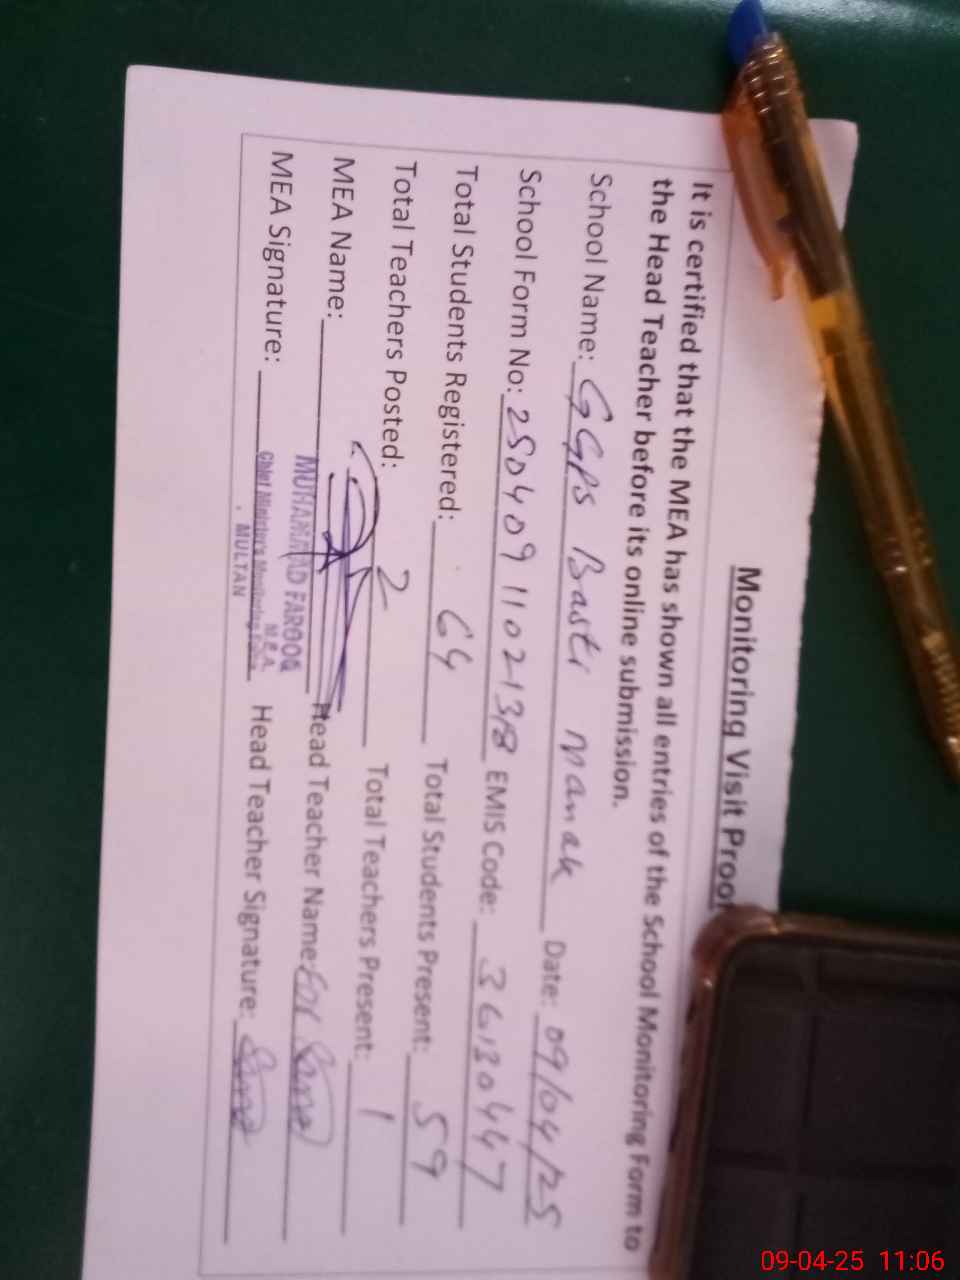 Monitoring Visit Proof
It is certified that the MEA has shown all entries of the School Monitoring Form to
the Head Teacher before its online submission.
School Name: GGPS Basti Nanak Date: 09/04/25
School Form No: EMIS Code: 36130447
Total Students Registered: 64 Total Students Present: 59
Total Teachers Posted: 2 Total Teachers Present: 1
MEA Name: Head Teacher Name:
MUHAMMAD FAROOQ
M.E.A.
MEA Signature: Head Teacher Signature:
Chief Minister's Monitoring Force
MULTAN
09-04-25 11:06